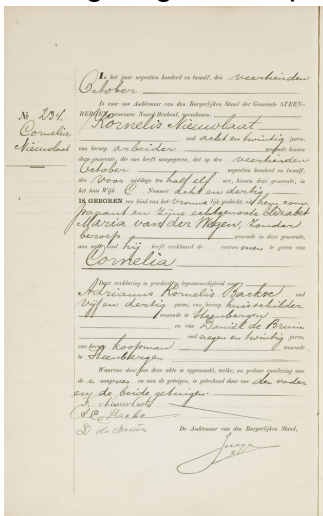 № 234.
Cornelia
Nieuwlaat
In het jaar negentien honderd en twaalf, den veertienden
October
is voor ons Ambtenaar van den Burgerlijken Stand der Gemeente STEEN-
BERGEN, provincie Noord-Brabant, verschenen:
Kornelis Nieuwlaat
oud acht en twintig jaren,
van beroep arbeider wonende binnen
deze gemeente, die ons heeft aangegeven, dat op den veertienden
October negentien honderd en twaalf,
des voor middags ten half elf ure, binnen deze gemeente, in
het huis Wijk C Nummer acht en dertig
IS GEBOREN een kind van het vrouwelijk geslacht, uit hem com
parant en zijne echtgenoote Elizabet
Maria van der Wegen, zonder
beroep wonende in deze gemeente,
aan welk kind hij heeft verklaard de voornamen te geven van
Cornelia
Deze verklaring is geschied in tegenwoordigheid van
Adrianus Kornelis Backx oud
vijf en dertig jaren, van beroep huisschilder
wonende te Steenbergen
en van Daniël de Bruin
oud negen en twintig jaren,
van beroep koopman wonende
te Steenbergen
Waarvan door ons deze akte is opgemaakt, welke, na gedane voorlezing aan
de aangever en aan de getuigen, is geteekend door ons den vader
en de beide getuigen.
K. Nieuwlaat
A.C. Backx
D de Bruin
De Ambtenaar van den Burgerlijken Stand,